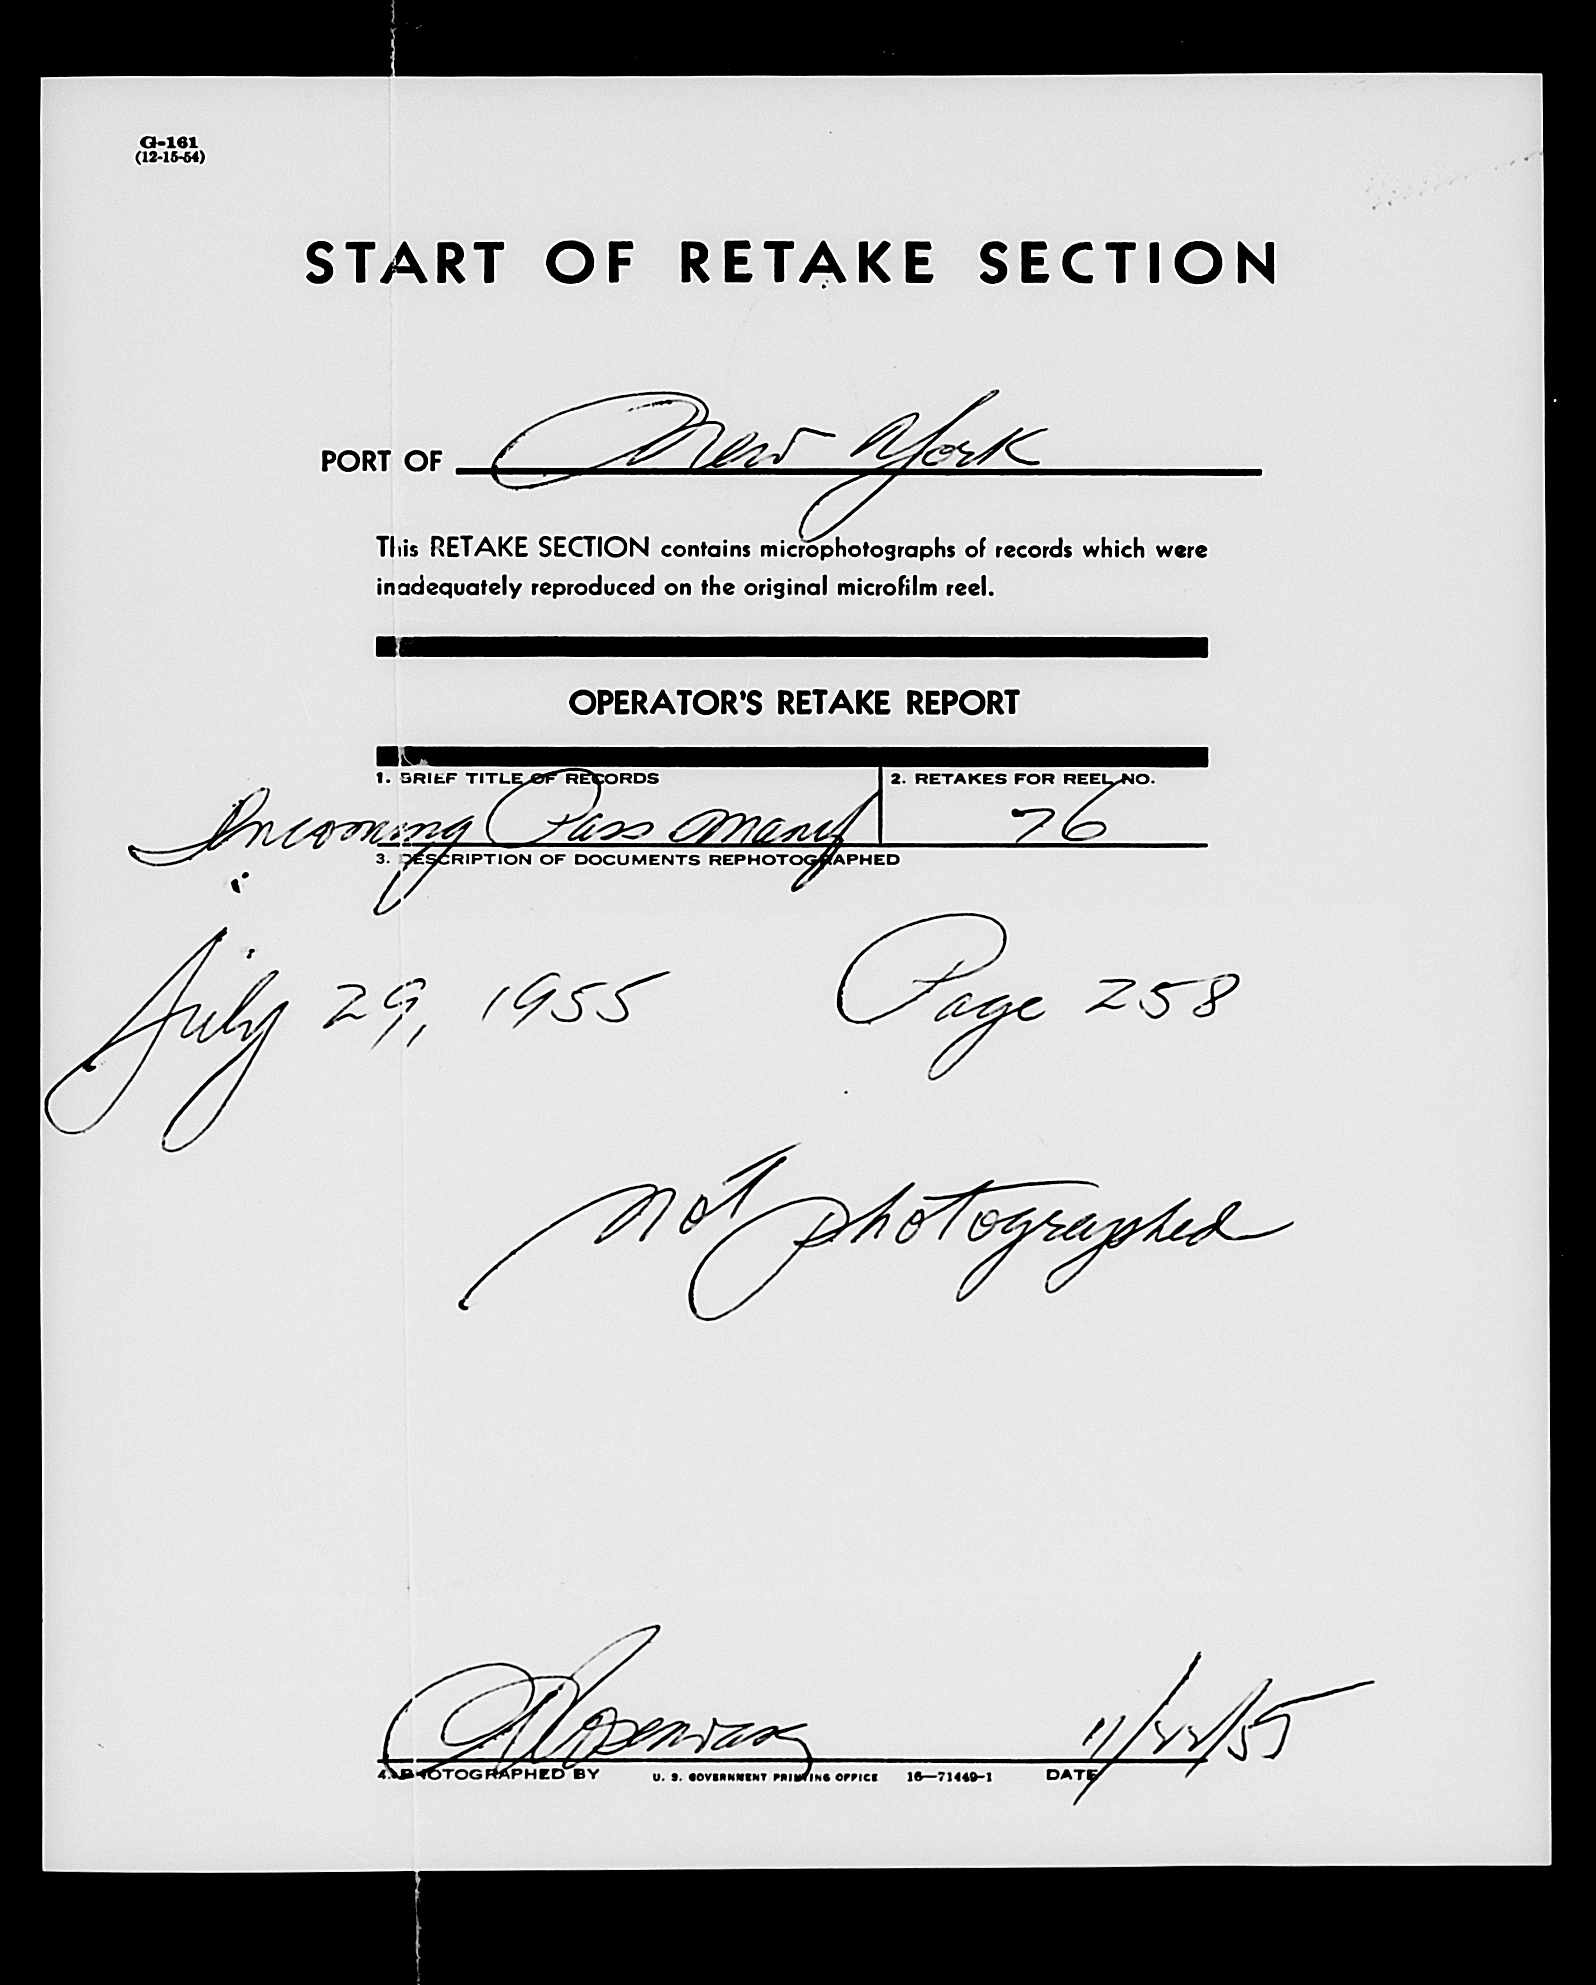 G-161
(12-15-54)
START OF RETAKE SECTION
PORT OF New York
This RETAKE SECTION contains microphotographs of records which were
inadequately reproduced on the original microfilm reel.
OPERATOR'S RETAKE REPORT
1. BRIEF TITLE OF RECORDS 2. RETAKES FOR REEL NO.
Incoming Pass Manif 76
3. DESCRIPTION OF DOCUMENTS REPHOTOGRAPHED
July 29, 1955 Page 258
not photographed
11/22/55
4. PHOTOGRAPHED BY U. S. GOVERNMENT PRINTING OFFICE 16—71449-1 DATE